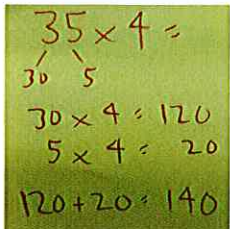 35 × 4 =
30 5
30 × 4 = 120
5 × 4 = 20
120 + 20 = 140